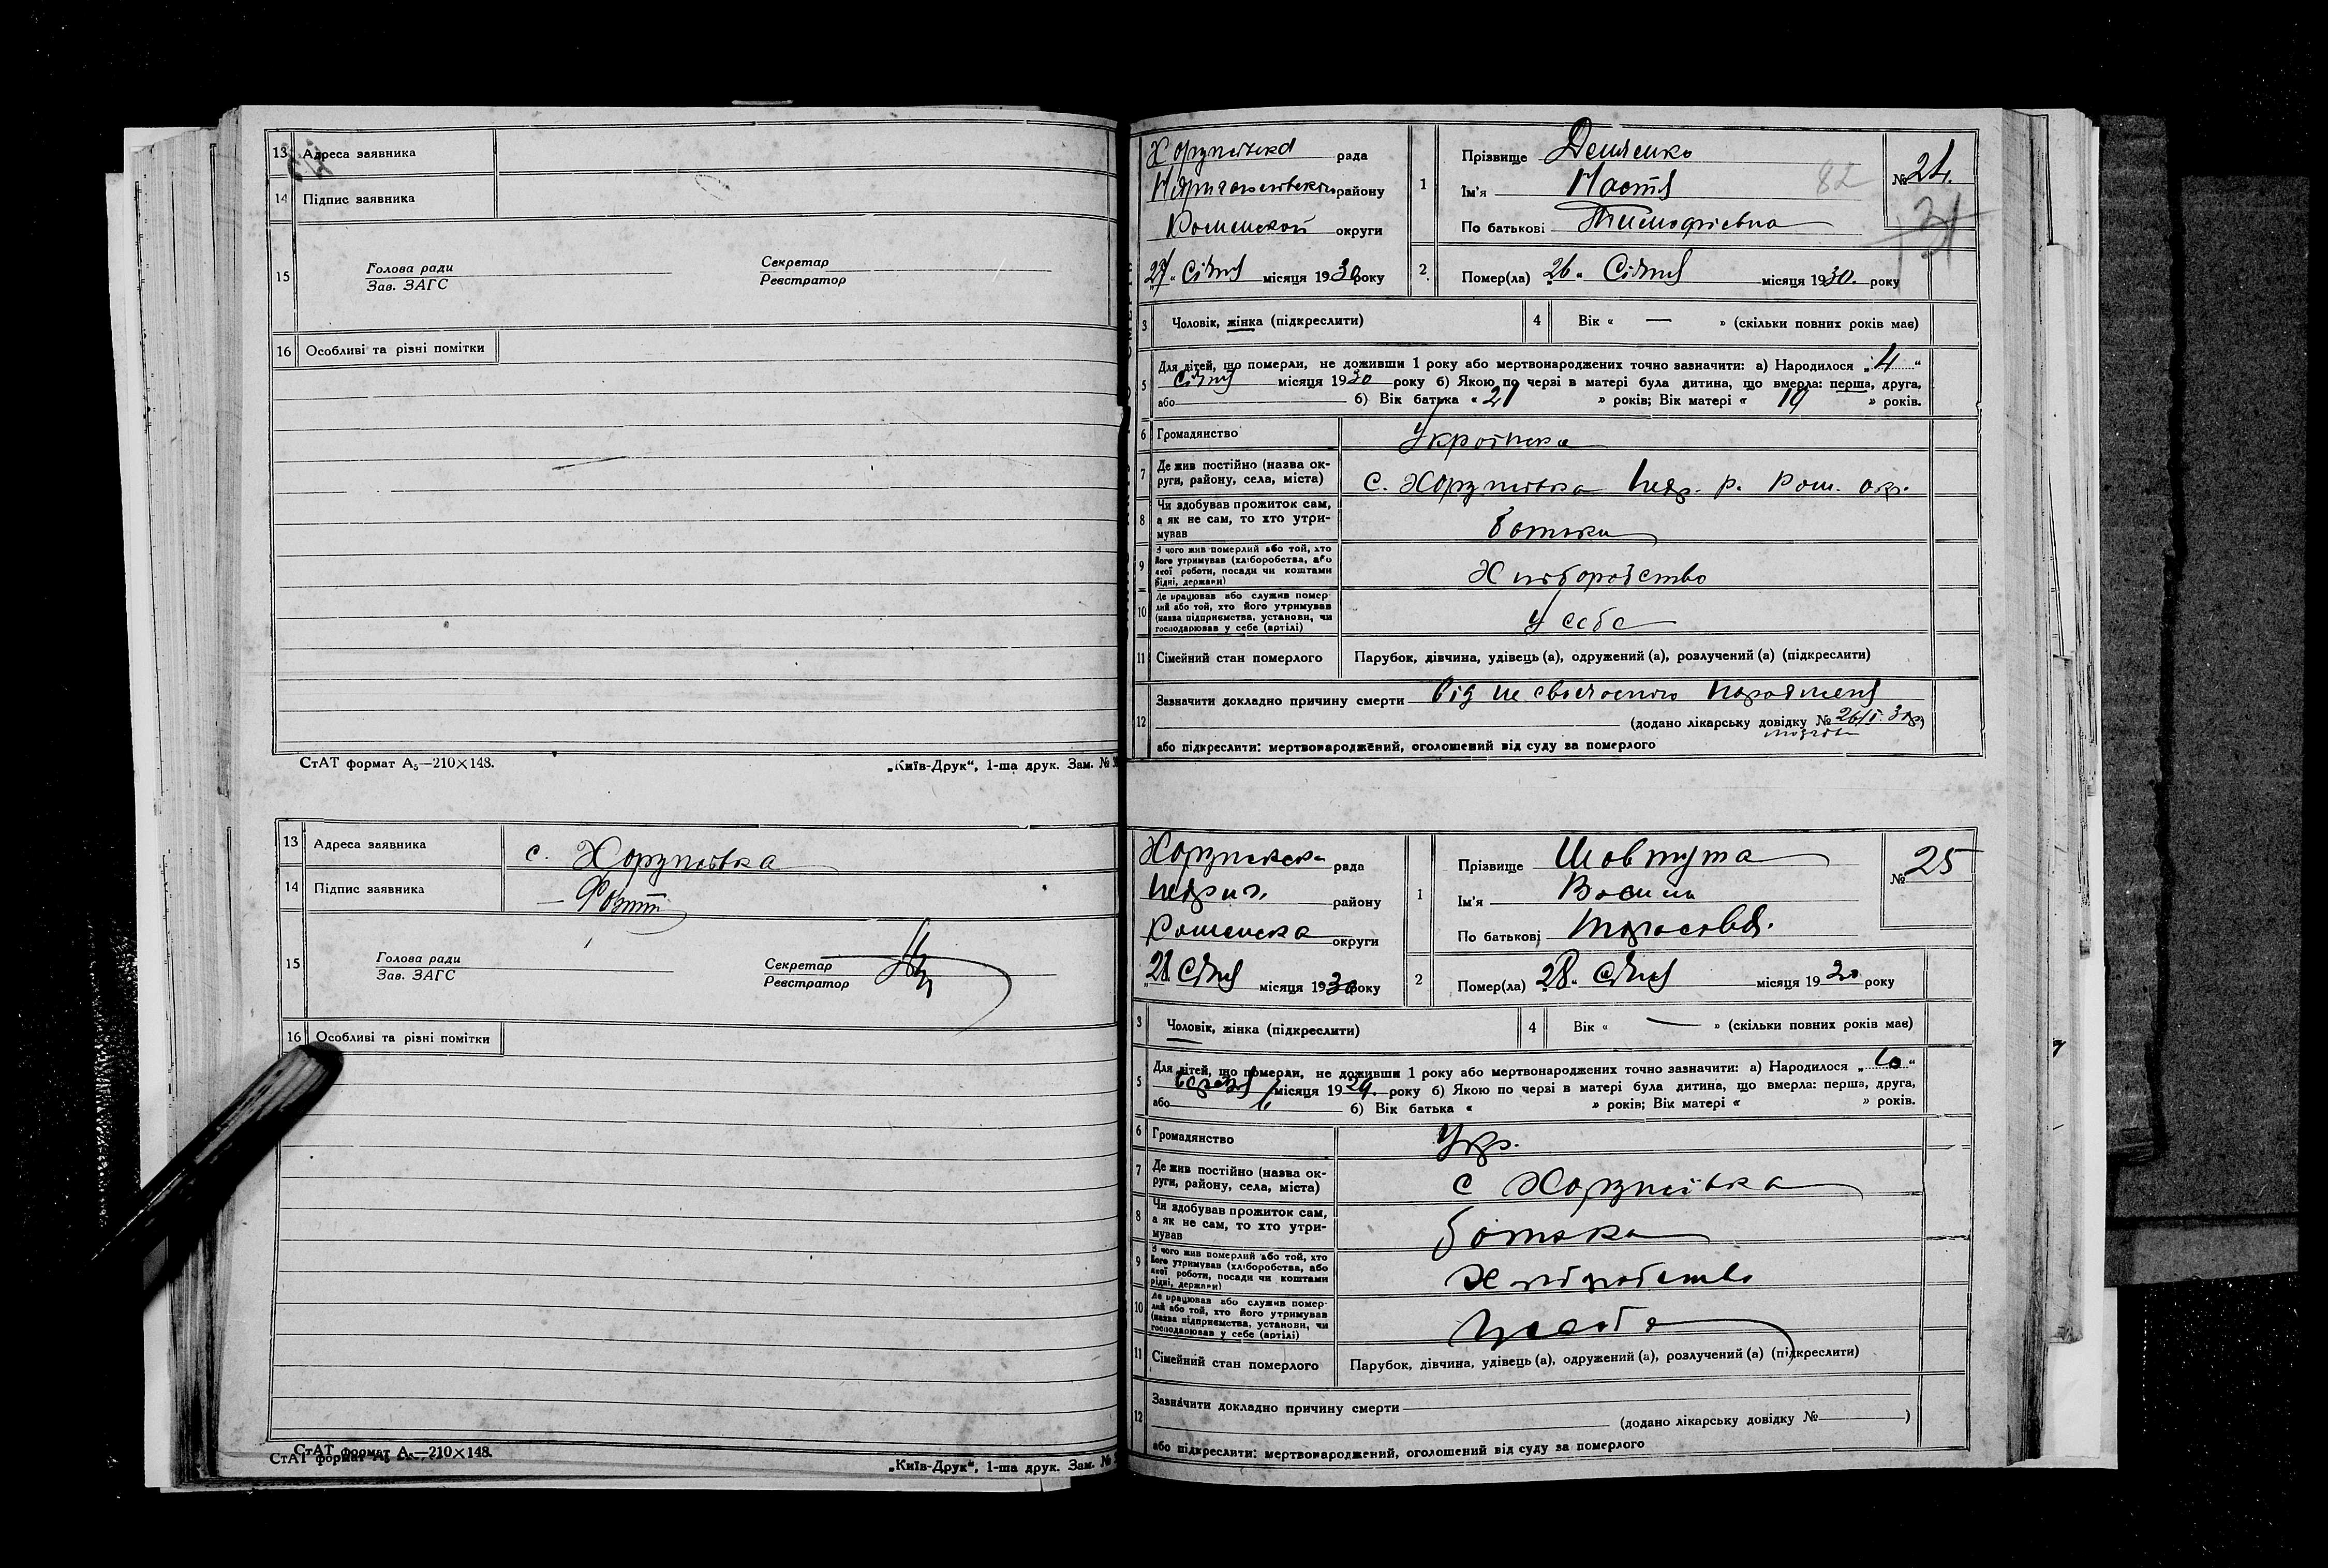 13 Адреса заявника
14 Підпис заявника
15 Голова ради
Зав. ЗАГС
Секретар
Реєстратор
16 Особливі та різні помітки
СтАТ формат А₅—210×148.
„Київ-Друк“, 1-ша друк. Зам. №
13 Адреса заявника с. Хоружівка
14 Підпис заявника
15 Голова ради
Зав. ЗАГС
Секретар
Реєстратор
16 Особливі та різні помітки
СтАТ формат А₅—210×148.
СтАТ формат
„Київ-Друк“, 1-ша друк. Зам. №
рада
району
Роменской округи
27 „ Січня місяця 1930 року
1 Прізвище
Ім'я Настя
По батькові Тимофієвна
82
№ 24.
2. Помер(ла) „26“ Січня місяця 1930. року
3 Чоловік, жінка (підкреслити)
4 Вік « — » (скільки повних років має)
5 Для дітей, що померли, не доживши 1 року або мертвонароджених точно зазначити: а) Народилося „4“
Січня місяця 1930 року б) Якою по черзі в матері була дитина, що вмерла: перша, друга,
або б) Вік батька « 21 » років; Вік матері « 19 » років.
6 Громадянство Українка
7 Де жив постійно (назва ок-
руги, району, села, міста) с. Хоружівка Недр. р. Ром. окр.
8 Чи здобував прожиток сам,
а як не сам, то хто утри-
мував батьки
9 З чого жив померлий або той, хто
його утримував (хліборобства, або
якої роботи, посади чи коштами
рідні, держави) Хліборобство
10 Де працював або служив помер-
лий або той, хто його утримував
(назва підприємства, установи, чи
господарював у себе (артілі) У себе
11 Сімейний стан померлого Парубок, дівчина, удівець (а), одружений (а), розлучений (а) (підкреслити)
12 Зазначити докладно причину смерти від не своєчасного народження
(додано лікарську довідку № 26/I. 30р)
або підкреслити: мертвонароджений, оголошений від суду за померлого
рада
Недриг. району
Роменска округи
28 Січня місяця 1930 року
1 Прізвище Шовтута
Ім'я Василь
По батькові Тарасовв.
№ 25
2 Помер(ла) „28“ Січня місяця 1930 року
3 Чоловік, жінка (підкреслити)
4 Вік « — » (скільки повних років має)
5 Для дітей, що померли, не доживши 1 року або мертвонароджених точно зазначити: а) Народилося „10“
місяця 1929. року б) Якою по черзі в матері була дитина, що вмерла: перша, друга,
або б) Вік батька « » років; Вік матері « » років.
6 Громадянство Укр.
7 Де жив постійно (назва ок-
руги, району, села, міста) с Хоружівка
8 Чи здобував прожиток сам,
а як не сам, то хто утри-
мував батька
9 З чого жив померлий або той, хто
його утримував (хліборобства, або
якої роботи, посади чи коштами
рідні, держави) Хліборобство
10 Де працював або служив помер-
лий або той, хто його утримував
(назва підприємства, установи, чи
господарював у себе (артілі) У себе
11 Сімейний стан померлого Парубок, дівчина, удівець (а), одружений (а), розлучений (а) (підкреслити)
12 Зазначити докладно причину смерти
(додано лікарську довідку № )
або підкреслити: мертвонароджений, оголошений від суду за померлого